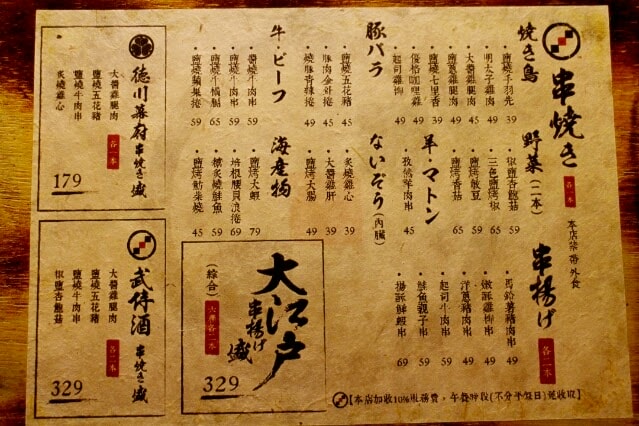 串焼き
各一本
本店禁帶外食
焼き鳥
・鹽燒手羽先 39
・明太子雞肉 49
・大醬雞腿肉 49
・鹽蔥雞腿肉 49
・鹽燒七里香 39
・起司雞柳 49
豚バラ
・鹽燒五花豬 45
・豚肉金針捲 49
・燒豚青辣捲 49
牛・ビーフ
・醬燒牛肉串 59
・鹽燒牛肉串 59
・鹽燒牛橫膈 65
野菜(二本)
・椒鹽杏鮑菇 59
・三色鹽烤椒 65
・鹽烤敏豆 59
・鹽烤香菇 65
羊・マトン
・孜然羊肉串 45
ないぞう(內臟)
・炙燒雞心 39
・大醬雞肝 39
・鹽烤大腸 49
海産物
・鹽烤大蝦 79
・培根腰貝浪捲 69
・檸炙燒鮭魚 59
串揚げ
各二本
・馬鈴薯豬肉串 49
・嫩酥雞柳串 49
・洋蔥豬肉串 49
・起司牛肉串 59
・鮭魚親子串 59
・揚酥鮮蝦串 69
大江戶
串揚げ盛
(綜合)
六種各二本
329
德川幕府
串焼き盛
各一本
大醬雞腿肉
鹽燒五花豬
鹽燒牛肉串
炙燒雞心
179
武停酒
串焼き盛
各二本
大醬雞腿肉
鹽燒五花豬
鹽燒牛肉串
椒鹽杏鮑菇
329
【本店加收10%服務費，午餐時段(不分平假日)免收取】